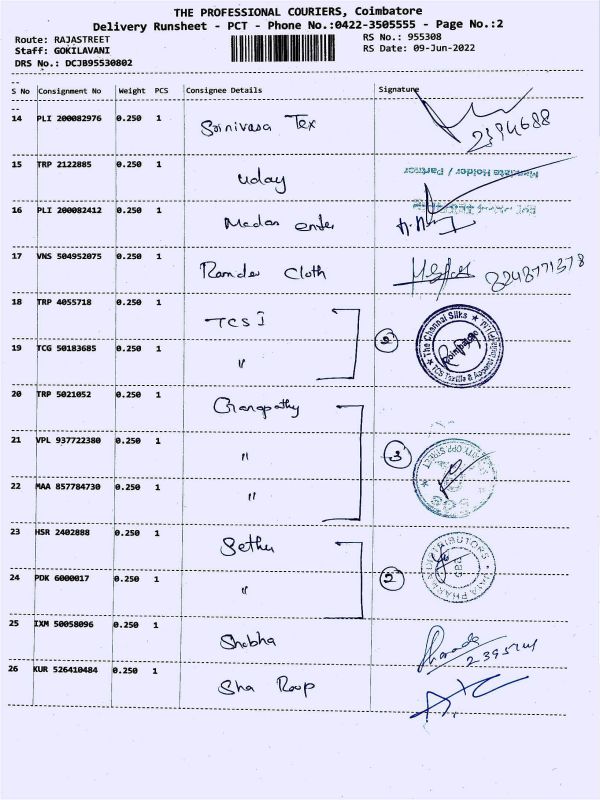 THE PROFESSIONAL COURIERS, Coimbatore
Delivery Runsheet - PCT - Phone No.:0422-3505555 - Page No.:2
Route: RAJASTREET RS No.: 955308
Staff: GOKILAVANI RS Date: 09-Jun-2022
DRS No.: DCJB95530802
S No Consignment No Weight PCS Consignee Details Signature
14 PLI 200082976 0.250 1 Srinivasa Tex
2394688
15 TRP 2122885 0.250 1 Uday
Mandate Holder / Partner
16 PLI 200082412 0.250 1 Madan enter
17 VNS 504952075 0.250 1 Ramdev Cloth 8248771378
18 TRP 4055718 0.250 1 TCS I
2 The Chennai Silks
19 TCG 50183685 0.250 1 "
20 TRP 5021052 0.250 1 Ganapathy
21 VPL 937722380 0.250 1 " 3
22 MAA 857784730 0.250 1 "
23 HSR 2402888 0.250 1 Sethu
DISTRIBUTORS
24 PDK 6000017 0.250 1 " 2
25 IXM 50058096 0.250 1 Shobha
26 KUR 526410484 0.250 1 Sha Roop